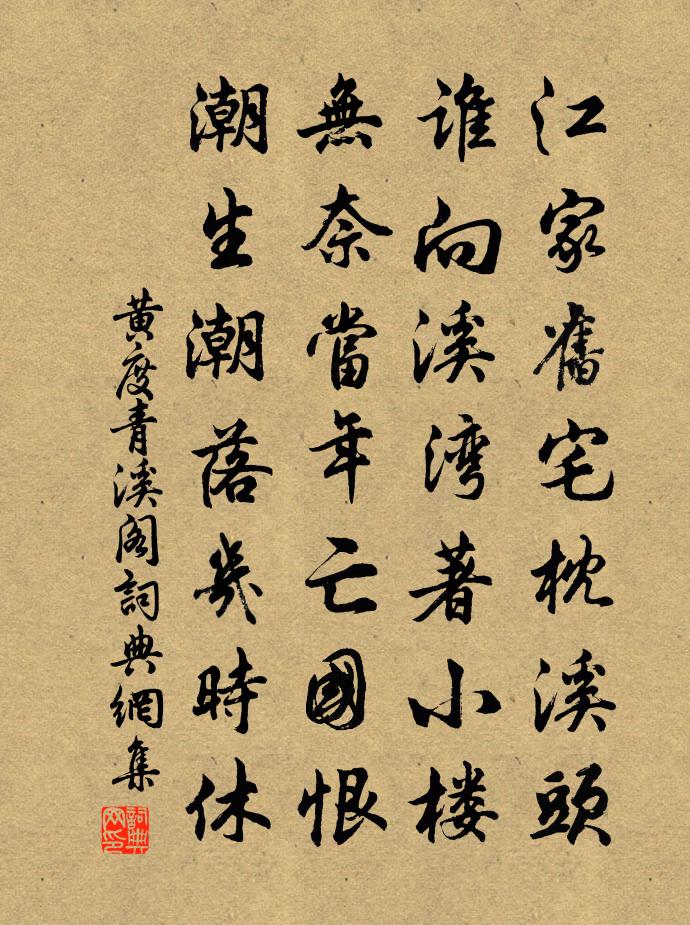 江家舊宅枕溪頭
谁向溪湾著小楼
無奈當年亡國恨
潮生潮落幾時休
黄度青溪阁詞典網集
詞典网印